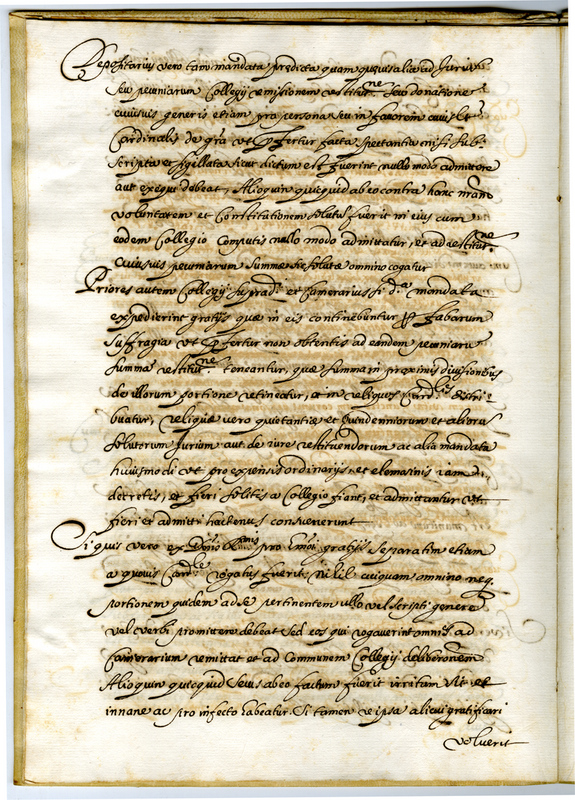 Depositarius vero tam mandata predicta quam quevis alia ad Jurium
seu pecuniarum Collegij remissionem restitut.ne seu donatione
cuiusvis generis etiam pra persona seu in favorem cuius
Cardinalis de gra ut fertur facta spectantia nisi sub
scripta et sigillata sicut dictum est fuerint nullo modo admittere
aut exequi debeat, Alioquin quicquid ab eo contra hanc
voluntatem et Constitutionem solutus fuerit in eius cum
eodem Collegio computis nullo modo admittatur, et ad restitut.ne
cuiusvis pecuniarum summae sic solutae omnino cogatur
Priores autem Collegij suprad. et Camerarius si d.a mandata
expedierint gratijs quae in eis continebuntur P fabarum
suffragia ut fertur non obtentis ad eandem pecuniaru
summa restitut.ne teneantur, quae summa in proximis divisionibus
de illorum portione retineatur, a in reliquos Card.les distri
buatur, reliquae vero quietantiae et quindenniorum et aliorus
solutorum Jurium aut de iure restituendorum ac alia mandata
huiusmodi ut pro expensis ordinarijs et elemosinis iam
decretis, et fieri solitis a Collegio fiant, et admittantur ut
fieri et admitti hactenus consueuerunt
Si quis vero ex pro gratijs separatim etiam
a quovis Card.le rogatus fuerit, nihil cuiquam omnino neq.
portionem quidem ad se pertinentem ullo vel scripti genere
vel verbi promittere debeat sed eos qui rogauerint omnis ad
Camerarium remittat et ad Communem Collegij deliberonem
Alioquin quicquid secus ab eo factum fuerit irritum sit et
innane ac pro infecto habeatur. Si tamen re ipsa alicui gratificari
voluerit